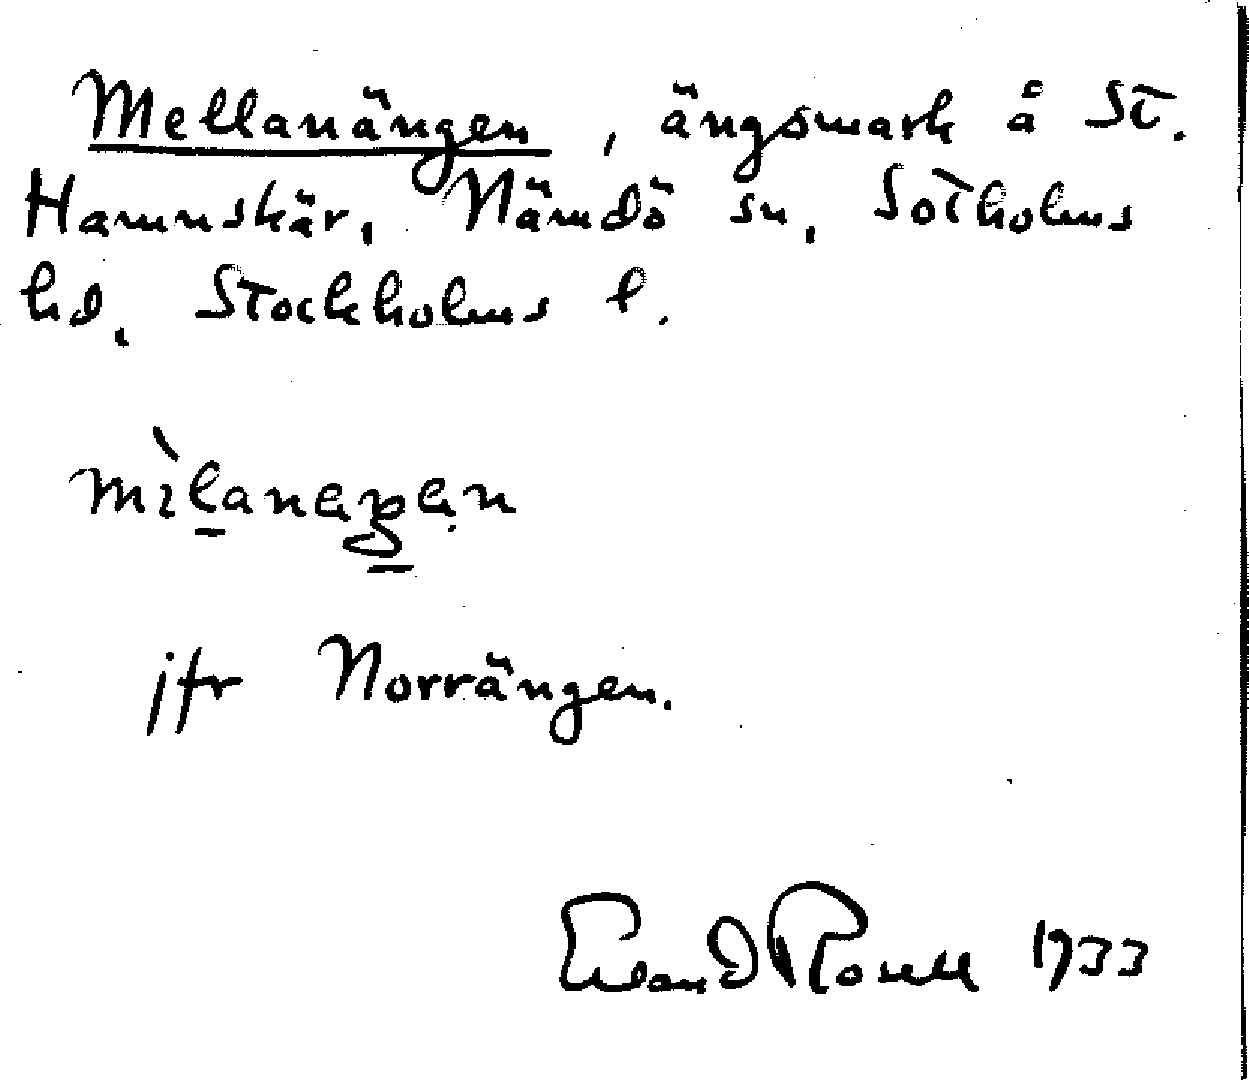 Mellanängen, ängsmark å St.
Hamnskär, Nämdö sn, Sotholms
hd, Stockholms l.
jfr Norrängen.
1933